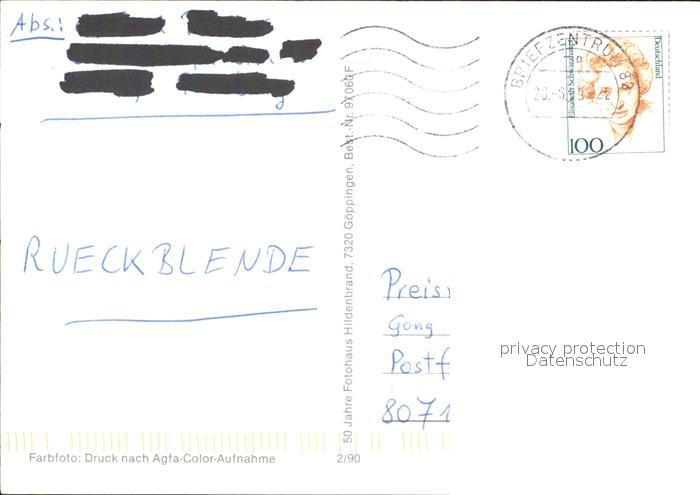 Abs.:
Deutschland
Elisabeth Schwarzhaupt
BRIEFZENTRUM 82
100
50 Jahre Fotohaus Hildenbrand, 7320 Göppingen, Best.-Nr. 97060F
RUECKBLENDE
Preis
Gong
Postf
8071
privacy protection
Datenschutz
Farbfoto: Druck nach Agfa-Color-Aufnahme 2/90